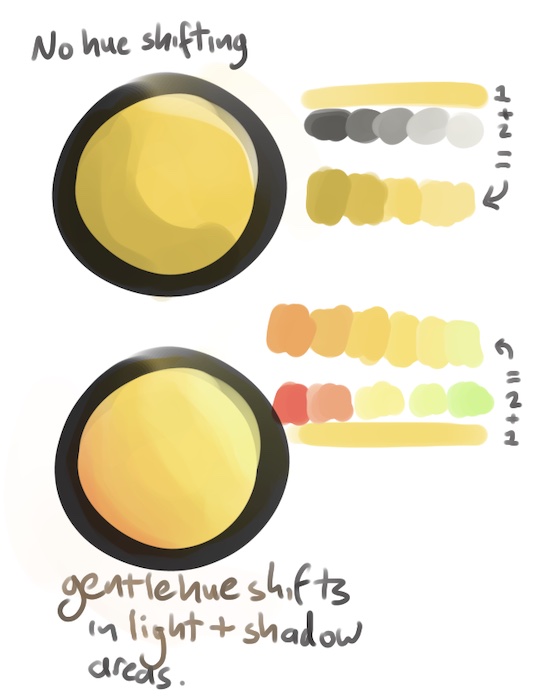 No hue shifting
1 + 2 =
1 + 2 =
gentle hue shifts
in light + shadow
areas.